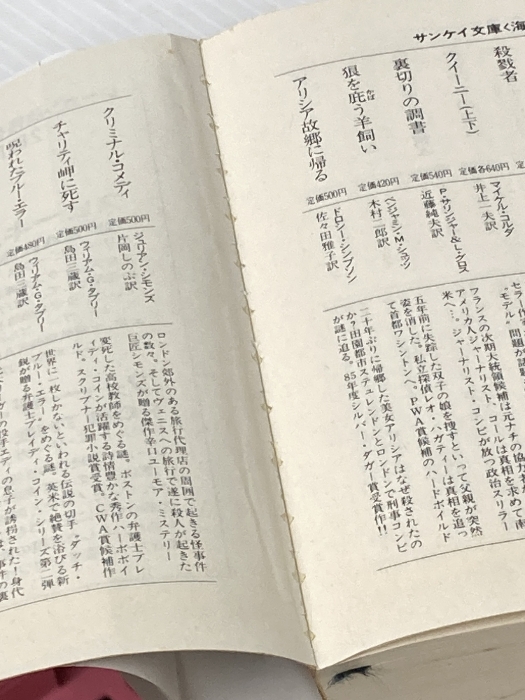 サンケイ文庫〈海
殺戮者
クイーニー(上下)
定価各640円
マイケル・コルダ
井上一夫訳
セラ作
モデル
問題が話題
裏切りの調書
定価540円
P・サリンジャー&L・グロス
近藤純夫訳
フランスの次期大統領候補は元ナチの協力者
アメリカ人ジャーナリスト、コールは真相を求めて南
米へ…。ジャーナリスト・コンビが放つ政治スリラー
狼を庇う羊飼い
定価420円
ベンジャミン・M・シュッツ
木村二郎訳
五年前に失踪した双子の娘を捜すといって父親が突然
姿を消した。私立探偵レオ・ハガティーは真相を追っ
て首都ワシントンへ。PWA賞候補のハードボイルド
アリシア故郷に帰る
定価500円
ドロシー・シンプソン
佐々田雅子訳
二十年ぶりに帰郷した美女アリシアはなぜ殺されたの
か?田園都市スチュレンドンとロンドンで刑事コンビ
が謎に迫る。85年度シルバー・ダガー賞受賞作!!
クリミナル・コメディ
定価500円
ジュリアン・シモンズ
片岡しのぶ訳
ロンドン郊外のある旅行代理店の周囲で起きる怪事件
の数々。そしてヴェニスへの旅行で遂に殺人が起きた
巨匠シモンズが贈る傑作辛口ユーモア・ミステリー
チャリティ岬に死す
定価500円
ウィリアム・G・タプリー
島田三蔵訳
変死した高校教師をめぐる謎。ボストンの弁護士ブレ
イディ・コインが活躍する詩情豊かな秀作ハードボイ
ルド。スクリブナー犯罪小説賞受賞。CWA賞候補作
呪われたブルー・エラー
定価480円
ウィリアム・G・タプリー
島田三蔵訳
世界に一枚しかないといわれる伝説の切手〝ダッチ・
ブルー・エラー〟をめぐる謎。英米で絶賛を浴びる新
鋭が贈る弁護士ブレイディ・コイン・シリーズ第二弾
投手エディの息子が誘拐された!身代
事件の裏